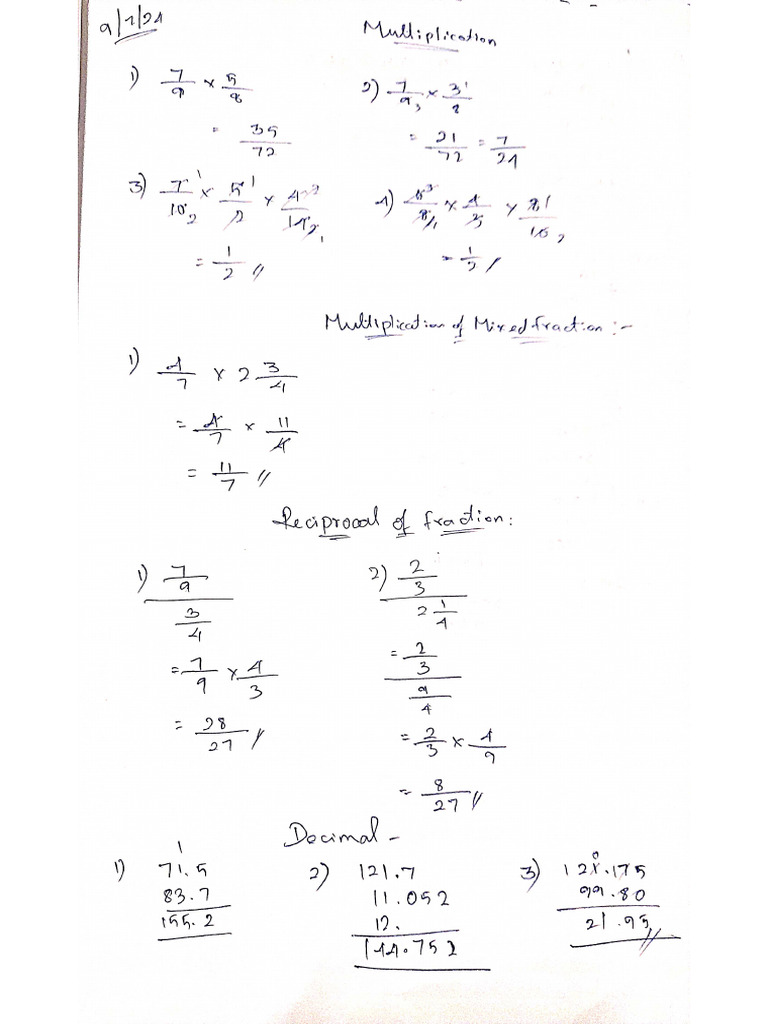 9/7/24
Multiplication
1) 7/9 × 5/8
= 35/72
2) 7/9 3 × 3 1/8
= 21/72 = 7/24
3) 7 1/10 2 × 5 1/2 × 4 2/14 2 1
= 1/2 //
4) × 4/3 × 8 1/16 2
= 1/2 /
Multiplication of Mixed fraction :-
1) 4/7 × 2 3/4
= 4/7 × 11/4
= 11/7 //
Reciprocal of fraction :
1) 7/9 / 3/4
= 7/9 × 4/3
= 28/27 //
2) 2/3 / 2 1/4
= 2/3 / 9/4
= 2/3 × 4/9
= 8/27 //
Decimal -
1
1) 71.5
83.7
155.2
2) 121.7
11.052
12.
144.752
0
3) 121.175
99.80
21.95 //